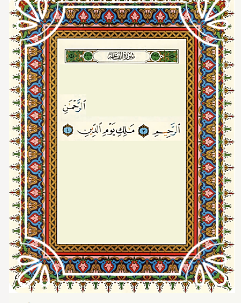 سُورَةُ الفَاتِحَةِ
ٱلرَّحْمَٰنِ
ٱلرَّحِيمِ ٣ مَٰلِكِ يَوْمِ ٱلدِّينِ ٤